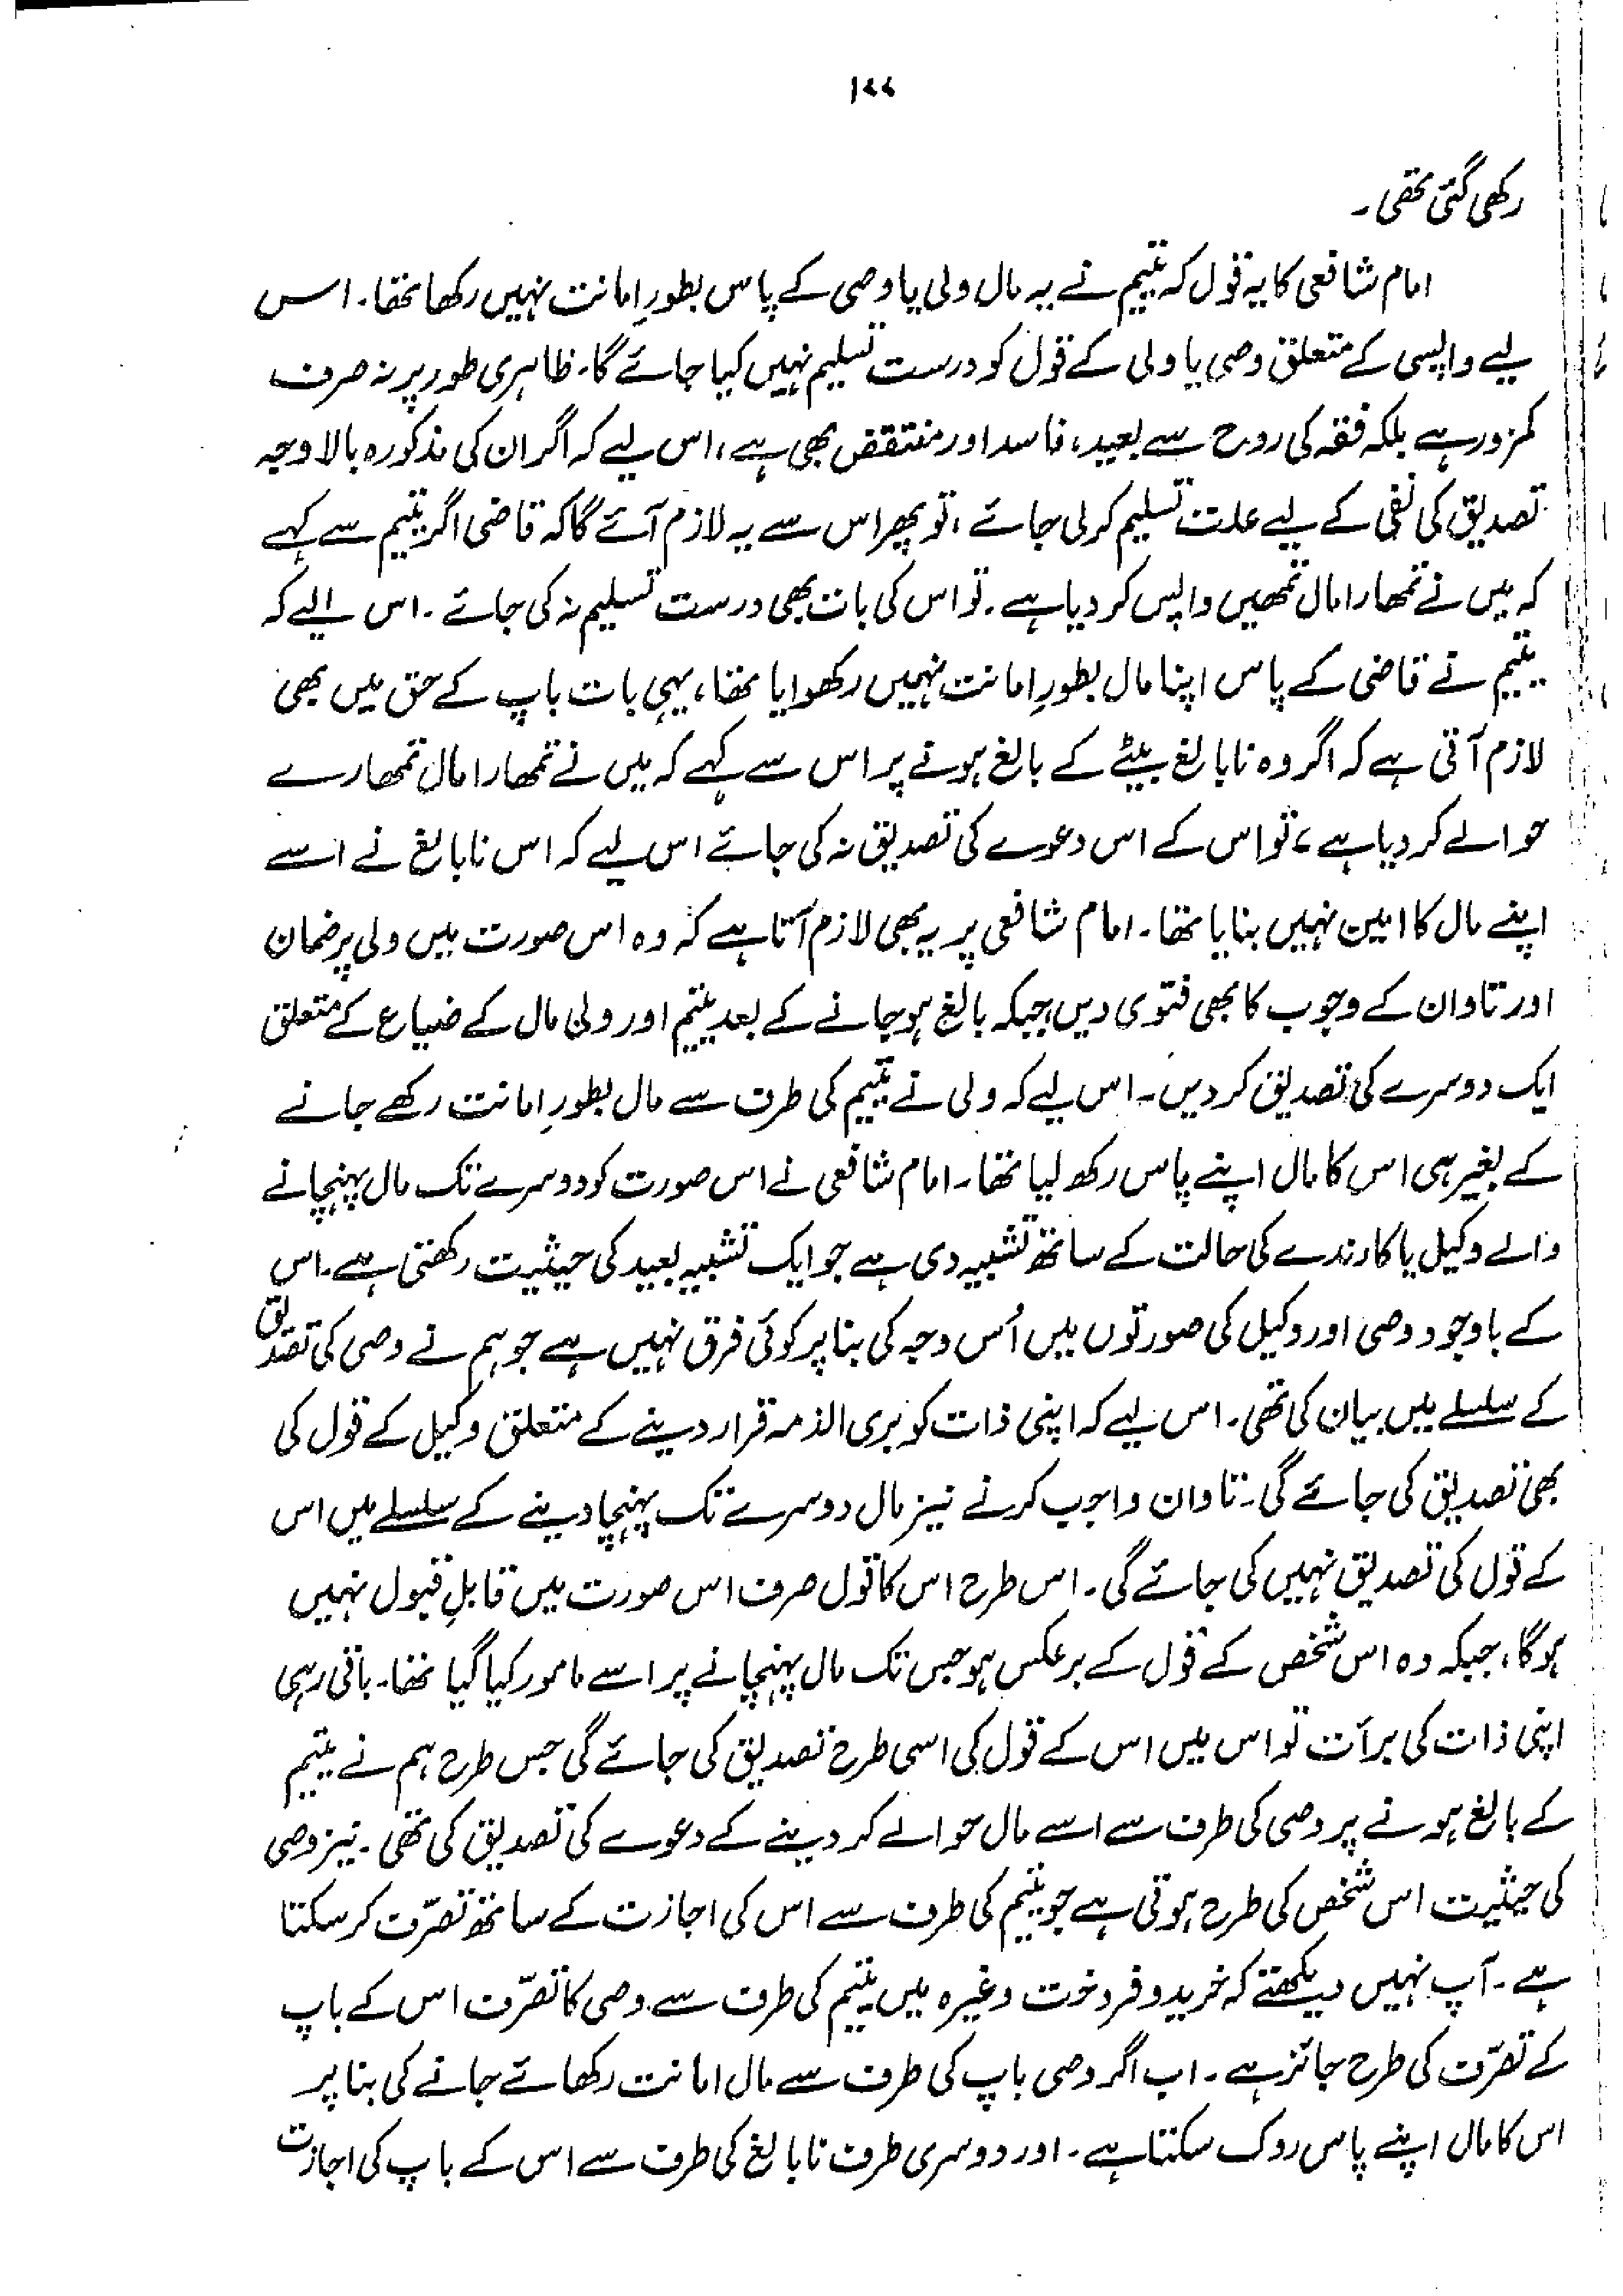 ۱۷۷
رکھی گئی تھی۔
امام شافعی کا یہ قول کہ یتیم نے یہ مال ولی یا وصی کے پاس بطورِ امانت نہیں رکھا تھا۔ اس
لیے واپسی کے متعلق وصی یا ولی کے قول کو درست تسلیم نہیں کیا جائے گا۔ ظاہری طور پر نہ صرف
کمزور ہے بلکہ فقہ کی روح سے بعید، فاسد اور منتقض بھی ہے، اس لیے کہ اگر ان کی مذکورہ بالا وجہ
تصدیق کی نفی کے لیے علت تسلیم کر لی جائے، تو پھر اس سے یہ لازم آئے گا کہ قاضی اگر یتیم سے کہے
کہ میں نے تمھارا مال تمھیں واپس کر دیا ہے۔ تو اس کی بات بھی درست تسلیم نہ کی جائے۔ اس لیے کہ
یتیم نے قاضی کے پاس اپنا مال بطورِ امانت نہیں رکھوایا تھا، یہی بات باپ کے حق میں بھی
لازم آتی ہے کہ اگر وہ نابالغ بیٹے کے بالغ ہونے پر اس سے کہے کہ میں نے تمھارا مال تمھارے
حوالے کر دیا ہے، تو اس کے اس دعوے کی تصدیق نہ کی جائے اس لیے کہ اس نابالغ نے اسے
اپنے مال کا امین نہیں بنایا تھا۔ امام شافعی پر یہ بھی لازم آتا ہے کہ وہ اس صورت میں ولی پر ضمان
اور تاوان کے وجوب کا بھی فتوی دیں جبکہ بالغ ہو جانے کے بعد یتیم اور ولی مال کے ضیاع کے متعلق
ایک دوسرے کی تصدیق کر دیں۔ اس لیے کہ ولی نے یتیم کی طرف سے مال بطورِ امانت رکھے جانے
کے بغیر ہی اس کا مال اپنے پاس رکھ لیا تھا۔ امام شافعی نے اس صورت کو دوسرے تک مال پہنچانے
والے وکیل یا کارندے کی حالت کے ساتھ تشبیہ دی ہے جو ایک تشبیہ بعید کی حیثیت رکھتی ہے۔ اس
کے باوجود وصی اور وکیل کی صورتوں میں اُس وجہ کی بنا پر کوئی فرق نہیں ہے جو ہم نے وصی کی تصدیق
کے سلسلے میں بیان کی تھی۔ اس لیے کہ اپنی ذات کو بری الذمہ قرار دینے کے متعلق وکیل کے قول کی
بھی تصدیق کی جائے گی۔ تاوان واجب کرنے نیز مال دوسرے تک پہنچا دینے کے سلسلے میں اس
کے قول کی تصدیق نہیں کی جائے گی۔ اس طرح اس کا قول صرف اس صورت میں قابلِ قبول نہیں
ہوگا، جبکہ وہ اس شخص کے قول کے برعکس ہو جس تک مال پہنچانے پر اسے مامور کیا گیا تھا۔ باقی رہی
اپنی ذات کی برآت تو اس میں اس کے قول کی اسی طرح تصدیق کی جائے گی جس طرح ہم نے یتیم
کے بالغ ہونے پر وصی کی طرف سے اسے مال حوالے کر دینے کے دعوے کی تصدیق کی تھی۔ نیز وصی
کی حیثیت اس شخص کی طرح ہوتی ہے جو یتیم کی طرف سے اس کی اجازت کے ساتھ تصرّف کر سکتا
ہے۔ آپ نہیں دیکھتے کہ خرید و فروخت وغیرہ میں یتیم کی طرف سے وصی کا تصرّف اس کے باپ
کے تصرّف کی طرح جائز ہے۔ اب اگر وصی باپ کی طرف سے مال امانت رکھائے جانے کی بنا پر
اس کا مال اپنے پاس روک سکتا ہے۔ اور دوسری طرف نابالغ کی طرف سے اس کے باپ کی اجازت